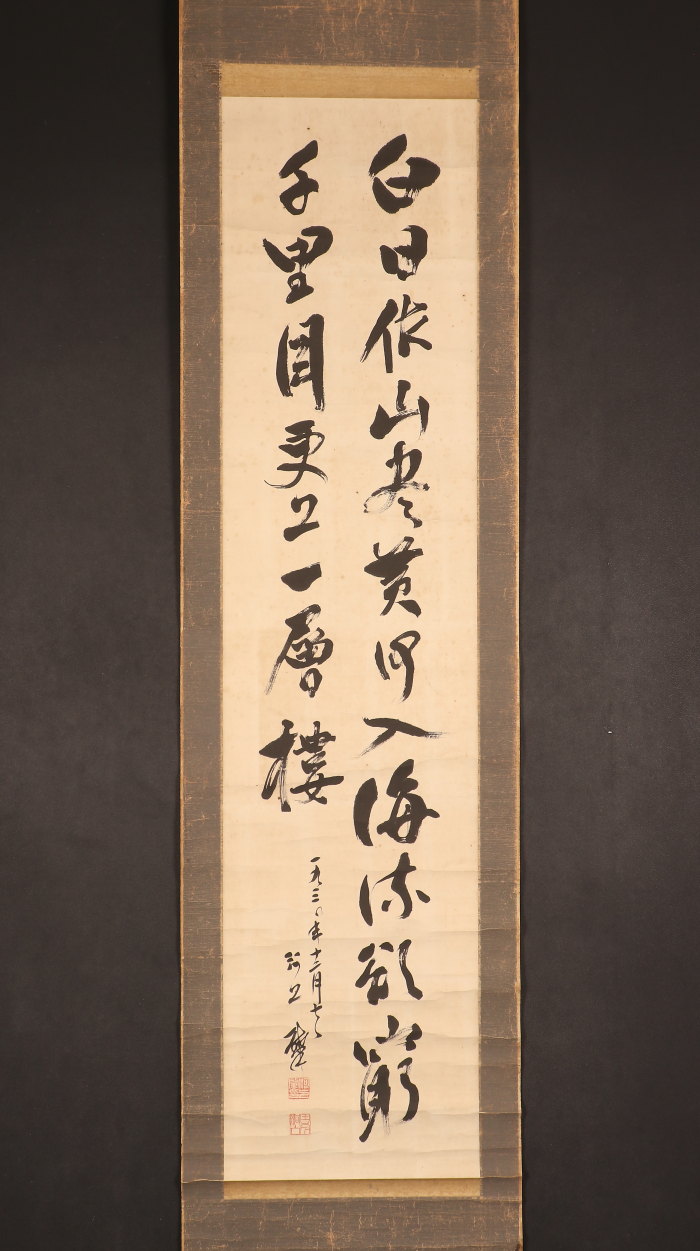 白日依山尽黄河入海流欲窮
千里目更上一層樓
一九三〇年十二月七、